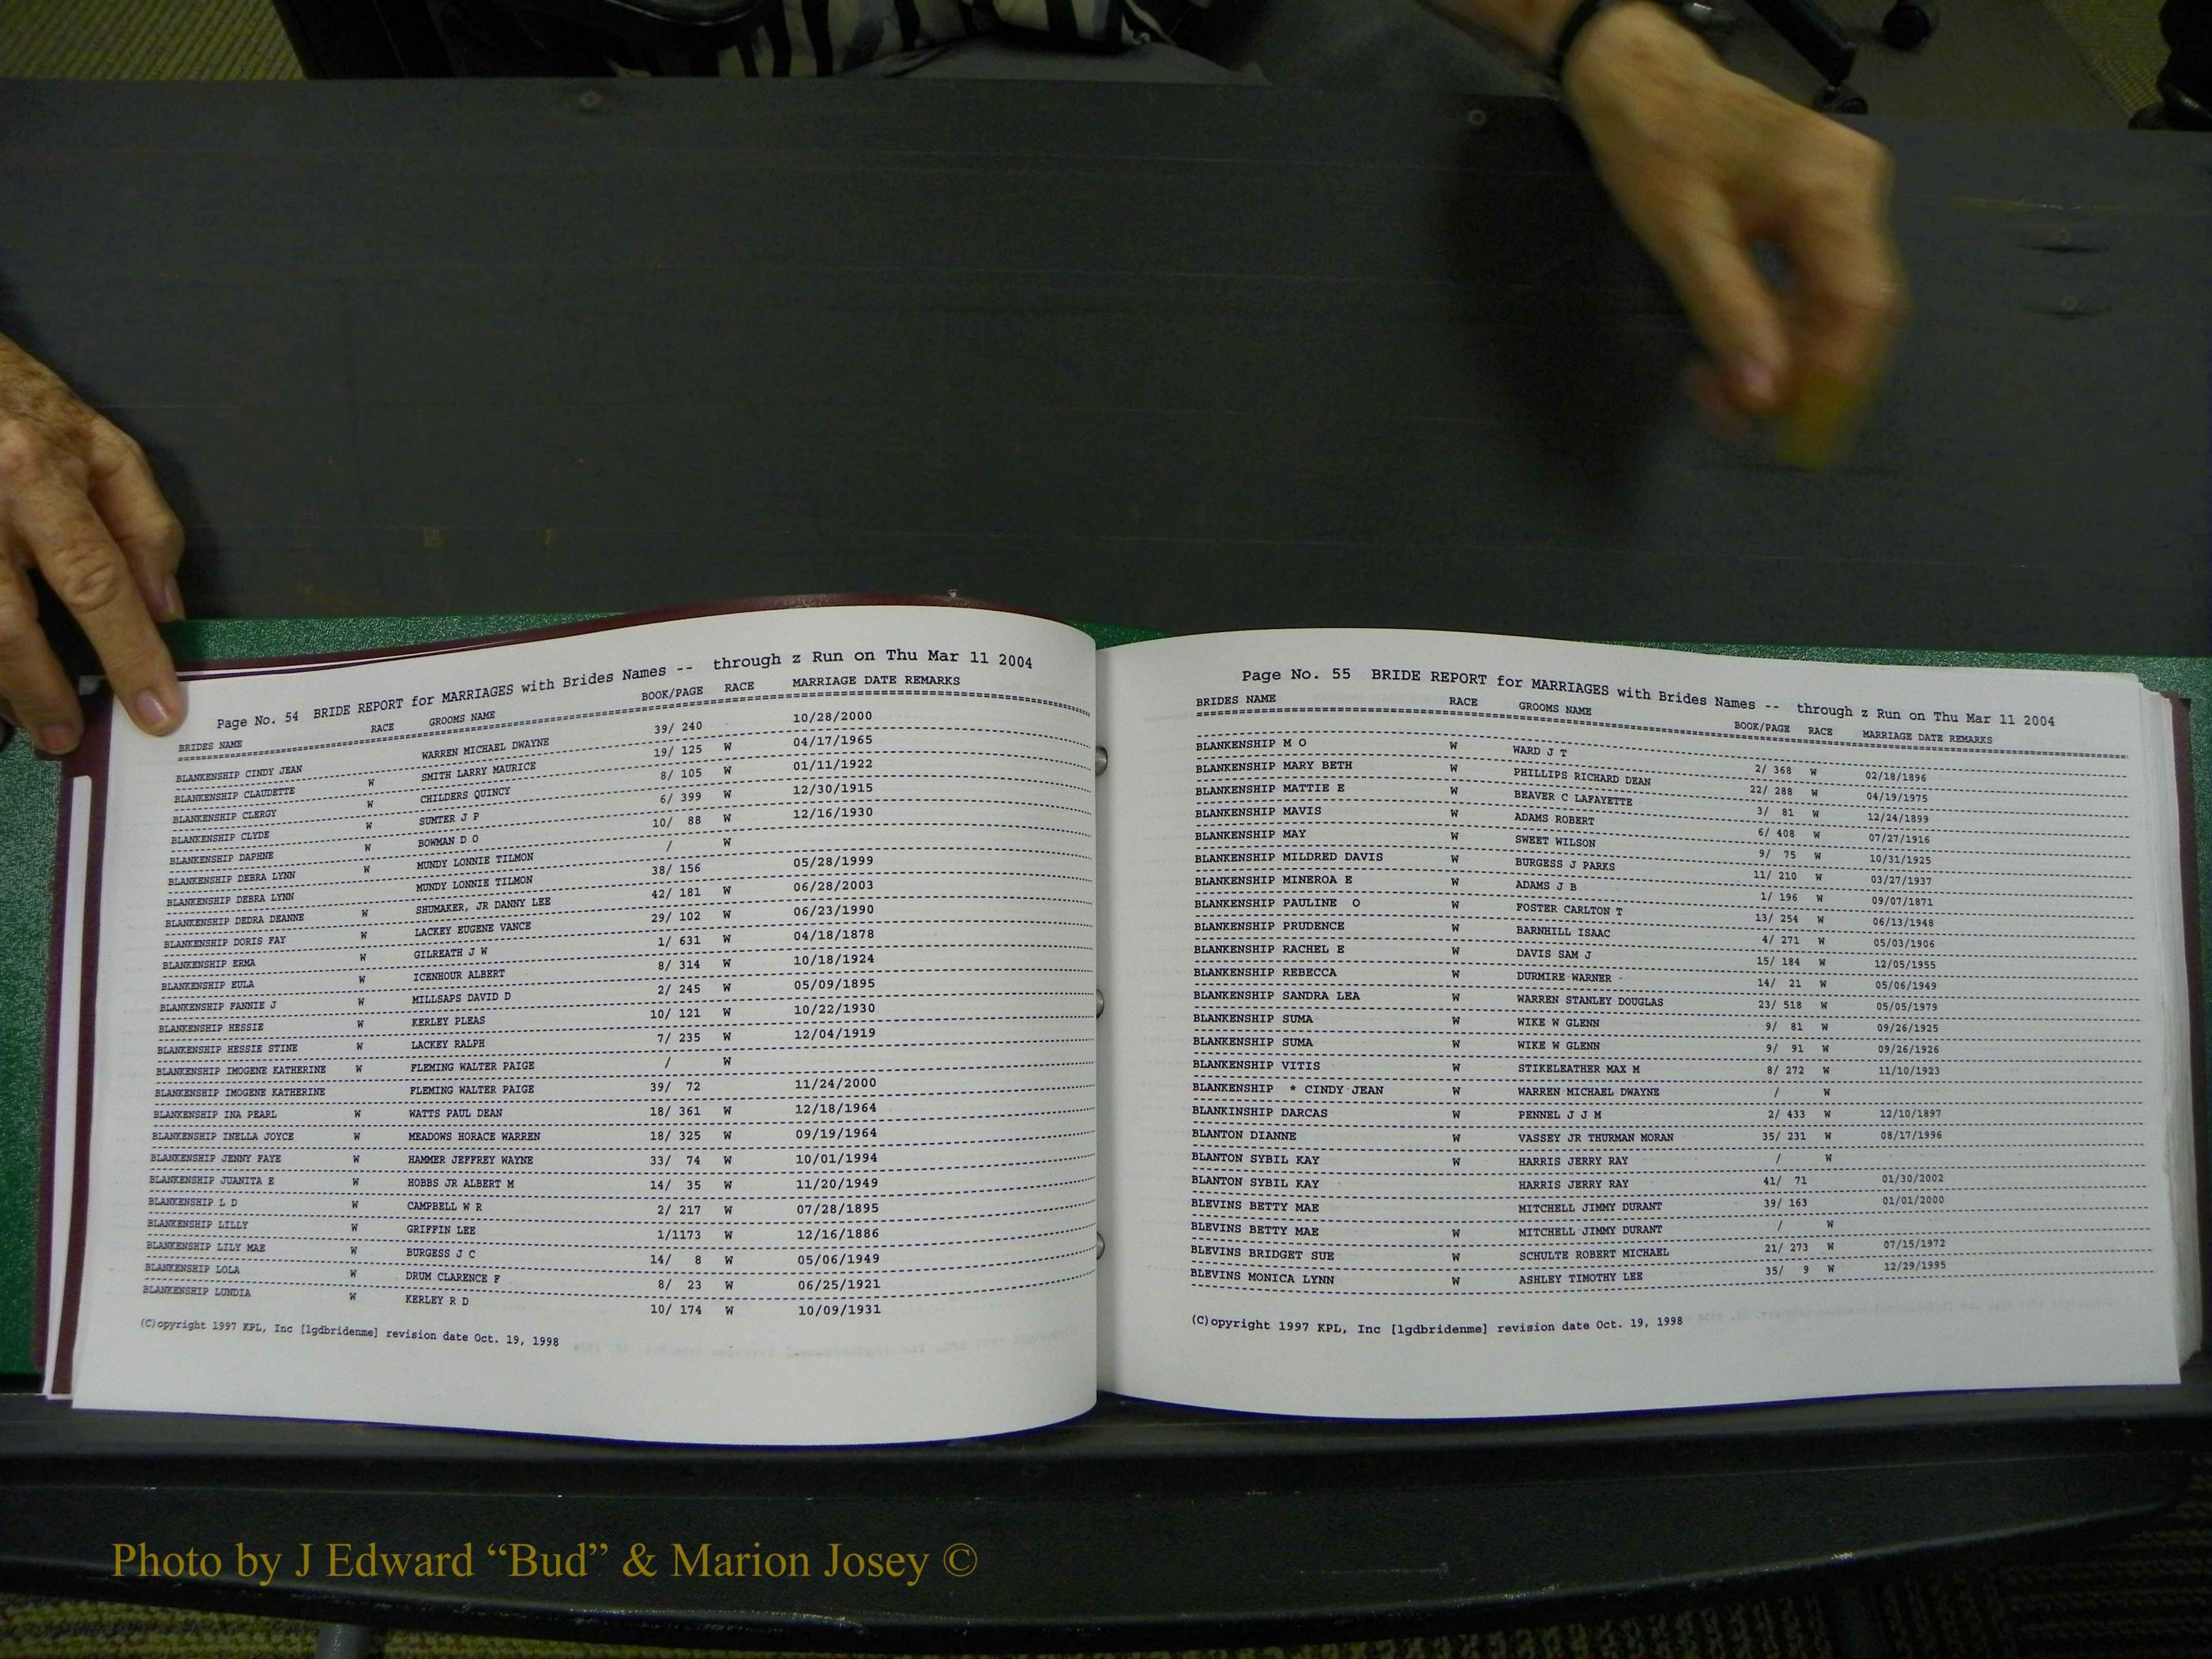 Page No. 54 BRIDE REPORT for MARRIAGES with Brides Names -- through z Run on Thu Mar 11 2004
BRIDES NAME RACE GROOMS NAME BOOK/PAGE RACE MARRIAGE DATE REMARKS
BLANKENSHIP CINDY JEAN WARREN MICHAEL DWAYNE 39/ 240 10/28/2000
BLANKENSHIP CLAUDETTE W SMITH LARRY MAURICE 19/ 125 W 04/17/1965
BLANKENSHIP CLERGY W CHILDERS QUINCY 8/ 105 W 01/11/1922
BLANKENSHIP CLYDE W SUMTER J P 6/ 399 W 12/30/1915
BLANKENSHIP DAPHNE W BOWMAN D O 10/ 88 W 12/16/1930
BLANKENSHIP DEBRA LYNN W MUNDY LONNIE TILMON / W
BLANKENSHIP DEBRA LYNN MUNDY LONNIE TILMON 38/ 156 05/28/1999
BLANKENSHIP DEDRA DEANNE W SHUMAKER, JR DANNY LEE 42/ 181 W 06/28/2003
BLANKENSHIP DORIS FAY W LACKEY EUGENE VANCE 29/ 102 W 06/23/1990
BLANKENSHIP ERMA W GILREATH J W 1/ 631 W 04/18/1878
BLANKENSHIP EULA W ICENHOUR ALBERT 8/ 314 W 10/18/1924
BLANKENSHIP FANNIE J W MILLSAPS DAVID D 2/ 245 W 05/09/1895
BLANKENSHIP HESSIE W KERLEY PLEAS 10/ 121 W 10/22/1930
BLANKENSHIP HESSIE STINE W LACKEY RALPH 7/ 235 W 12/04/1919
BLANKENSHIP IMOGENE KATHERINE W FLEMING WALTER PAIGE / W
BLANKENSHIP IMOGENE KATHERINE FLEMING WALTER PAIGE 39/ 72 11/24/2000
BLANKENSHIP INA PEARL W WATTS PAUL DEAN 18/ 361 W 12/18/1964
BLANKENSHIP INELLA JOYCE W MEADOWS HORACE WARREN 18/ 325 W 09/19/1964
BLANKENSHIP JENNY FAYE W HAMMER JEFFREY WAYNE 33/ 74 W 10/01/1994
BLANKENSHIP JUANITA E W HOBBS JR ALBERT M 14/ 35 W 11/20/1949
BLANKENSHIP L D W CAMPBELL W R 2/ 217 W 07/28/1895
BLANKENSHIP LILLY W GRIFFIN LEE 1/1173 W 12/16/1886
BLANKENSHIP LILY MAE W BURGESS J C 14/ 8 W 05/06/1949
BLANKENSHIP LOLA W DRUM CLARENCE F 8/ 23 W 06/25/1921
BLANKENSHIP LUNDIA W KERLEY R D 10/ 174 W 10/09/1931
(C)opyright 1997 KPL, Inc [lgdbridenme] revision date Oct. 19, 1998
Page No. 55 BRIDE REPORT for MARRIAGES with Brides Names -- through z Run on Thu Mar 11 2004
BRIDES NAME RACE GROOMS NAME BOOK/PAGE RACE MARRIAGE DATE REMARKS
BLANKENSHIP M O W WARD J T 2/ 368 W 02/18/1896
BLANKENSHIP MARY BETH W PHILLIPS RICHARD DEAN 22/ 288 W 04/19/1975
BLANKENSHIP MATTIE E W BEAVER C LAFAYETTE 3/ 81 W 12/24/1899
BLANKENSHIP MAVIS W ADAMS ROBERT 6/ 408 W 07/27/1916
BLANKENSHIP MAY W SWEET WILSON 9/ 75 W 10/31/1925
BLANKENSHIP MILDRED DAVIS W BURGESS J PARKS 11/ 210 W 03/27/1937
BLANKENSHIP MINEROA E W ADAMS J B 1/ 196 W 09/07/1871
BLANKENSHIP PAULINE O W FOSTER CARLTON T 13/ 254 W 06/13/1948
BLANKENSHIP PRUDENCE W BARNHILL ISAAC 4/ 271 W 05/03/1906
BLANKENSHIP RACHEL E W DAVIS SAM J 15/ 184 W 12/05/1955
BLANKENSHIP REBECCA W DURMIRE WARNER 14/ 21 W 05/06/1949
BLANKENSHIP SANDRA LEA W WARREN STANLEY DOUGLAS 23/ 518 W 05/05/1979
BLANKENSHIP SUMA W WIKE W GLENN 9/ 81 W 09/26/1925
BLANKENSHIP SUMA W WIKE W GLENN 9/ 91 W 09/26/1926
BLANKENSHIP VITIS W STIKELEATHER MAX M 8/ 272 W 11/10/1923
BLANKENSHIP * CINDY JEAN W WARREN MICHAEL DWAYNE / W
BLANKINSHIP DARCAS W PENNEL J J M 2/ 433 W 12/10/1897
BLANTON DIANNE W VASSEY JR THURMAN MORAN 35/ 231 W 08/17/1996
BLANTON SYBIL KAY W HARRIS JERRY RAY / W
BLANTON SYBIL KAY HARRIS JERRY RAY 41/ 71 01/30/2002
BLEVINS BETTY MAE MITCHELL JIMMY DURANT 39/ 163 01/01/2000
BLEVINS BETTY MAE W MITCHELL JIMMY DURANT / W
BLEVINS BRIDGET SUE W SCHULTE ROBERT MICHAEL 21/ 273 W 07/15/1972
BLEVINS MONICA LYNN W ASHLEY TIMOTHY LEE 35/ 9 W 12/29/1995
(C)opyright 1997 KPL, Inc [lgdbridenme] revision date Oct. 19, 1998
Photo by J Edward “Bud” & Marion Josey ©